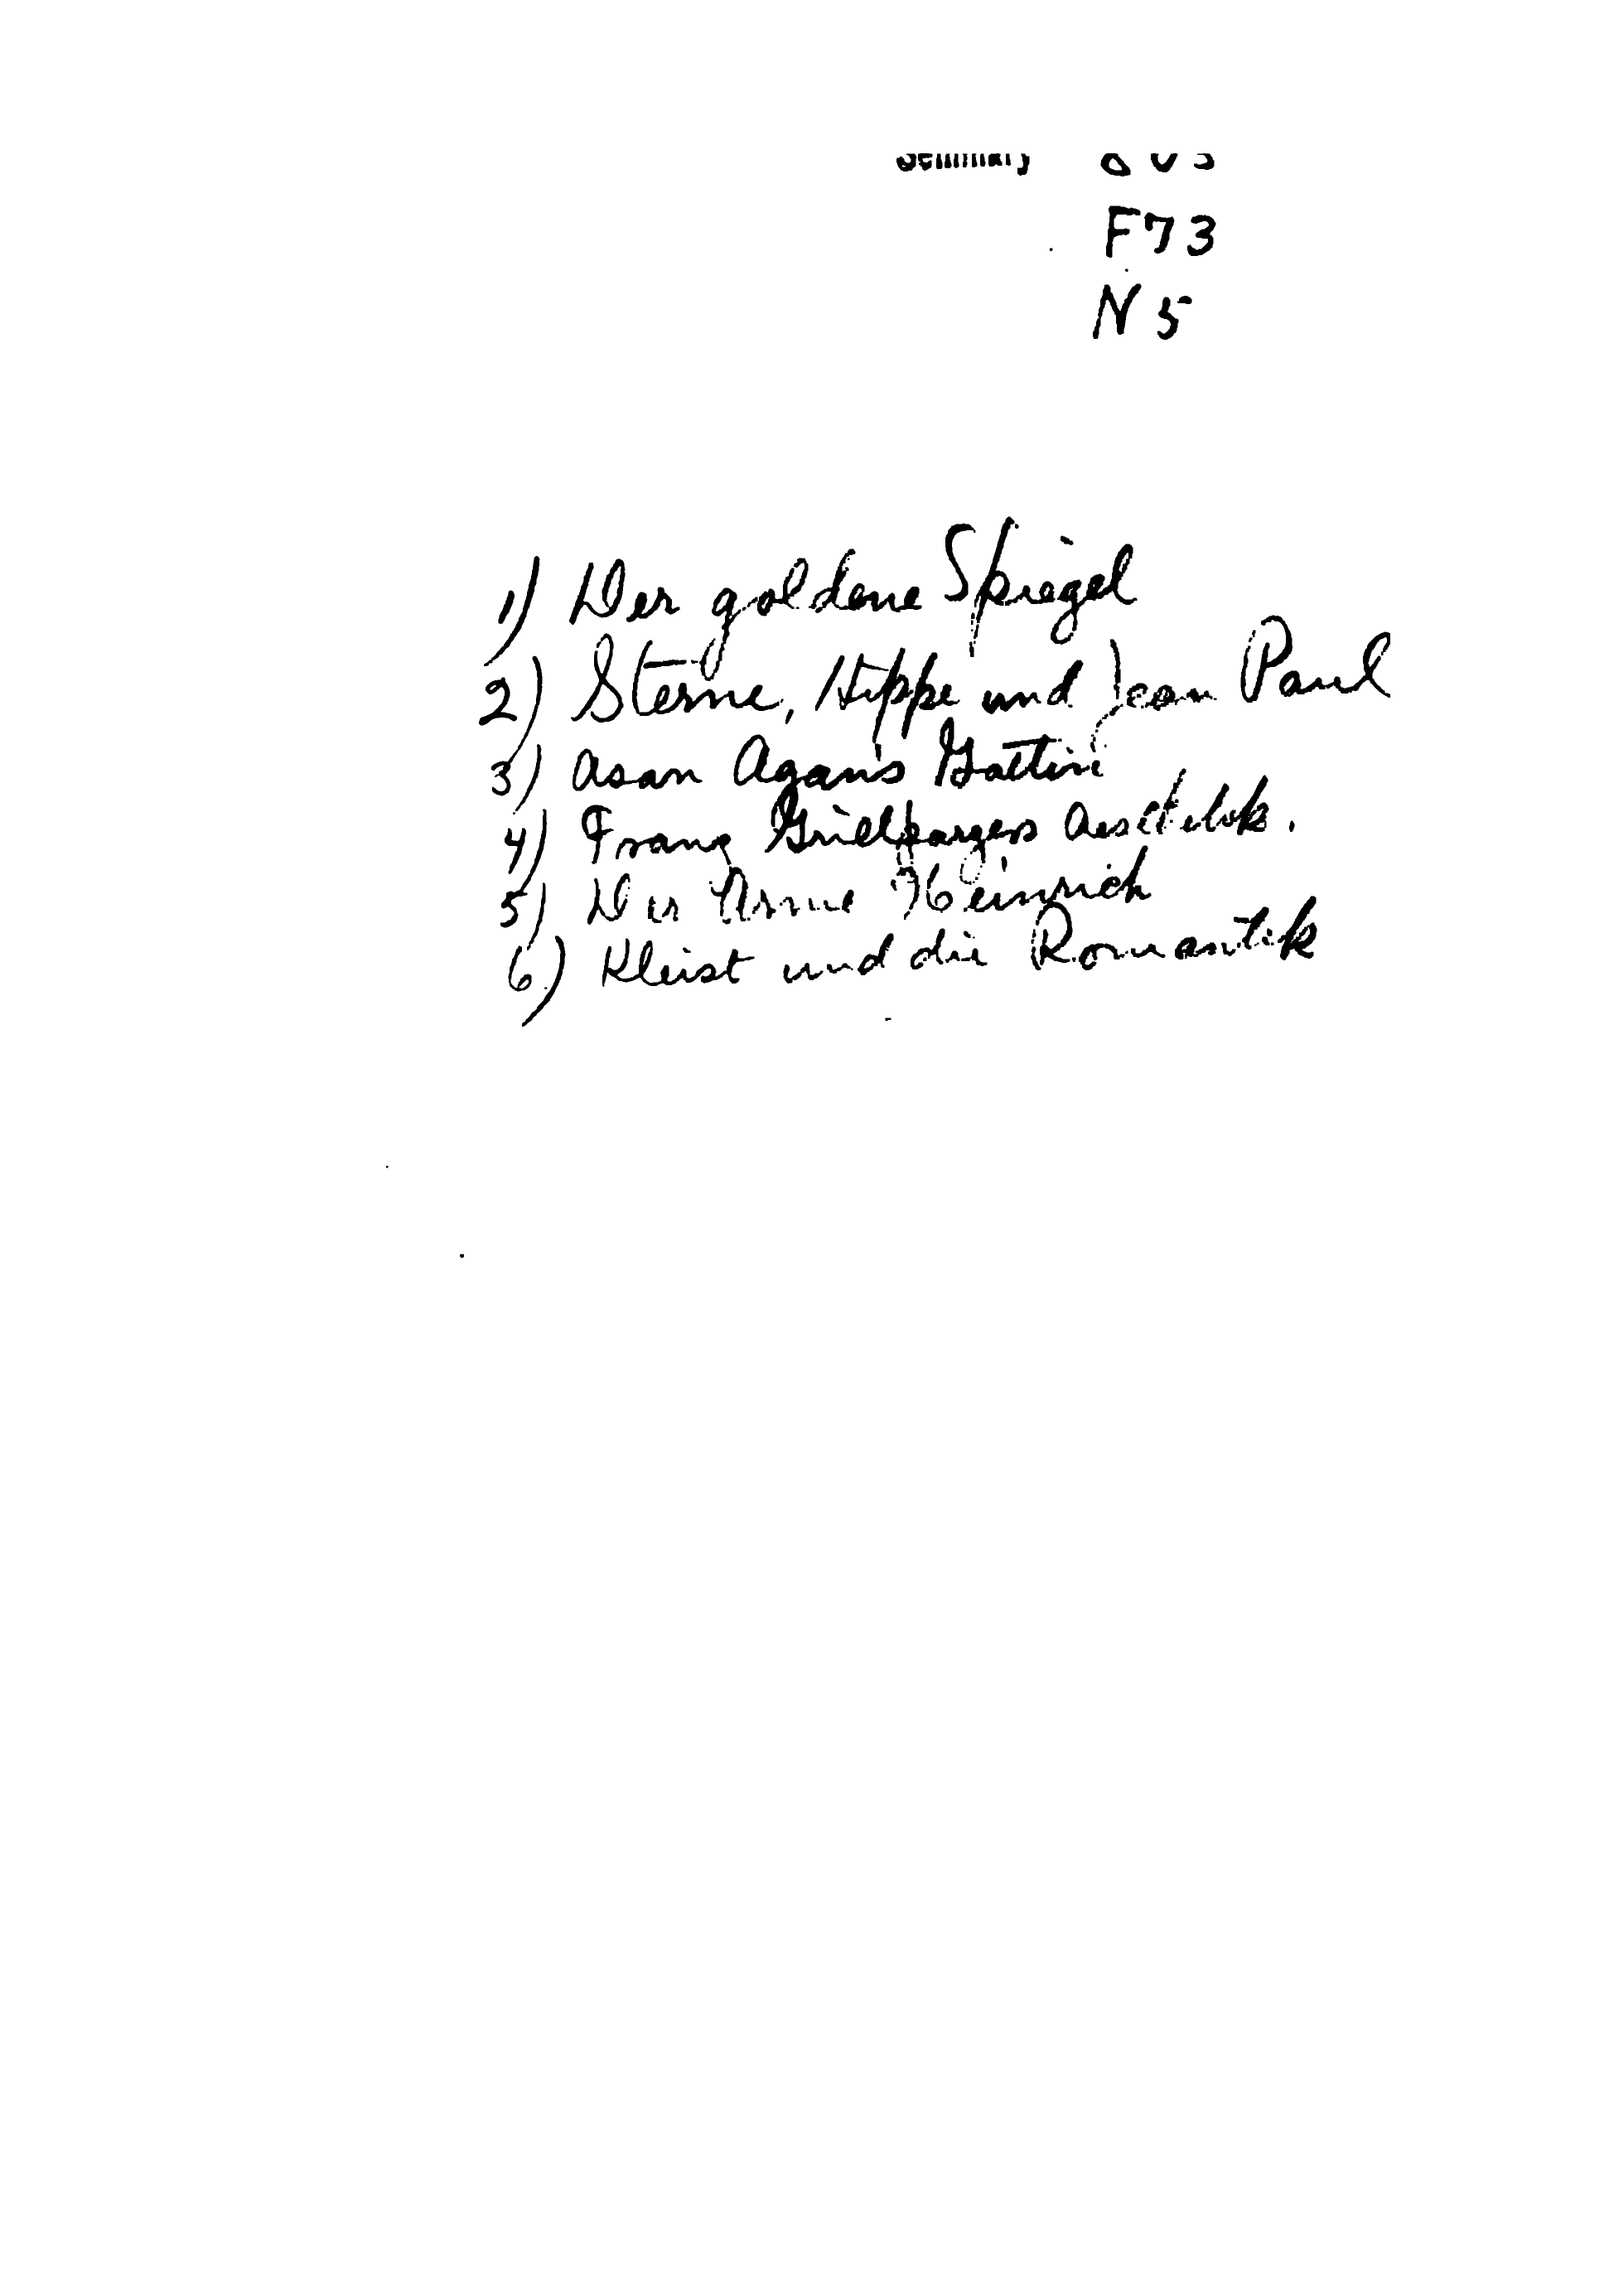 F73
N5
1) Der goldene Spiegel
2) Sterne, Hippe und Jean Paul
3) Asan Agan's Gattin
4) Franz Grillparzers Aesthetik.
5) Der Arme Heinrich
6) Kleist und die Romantik